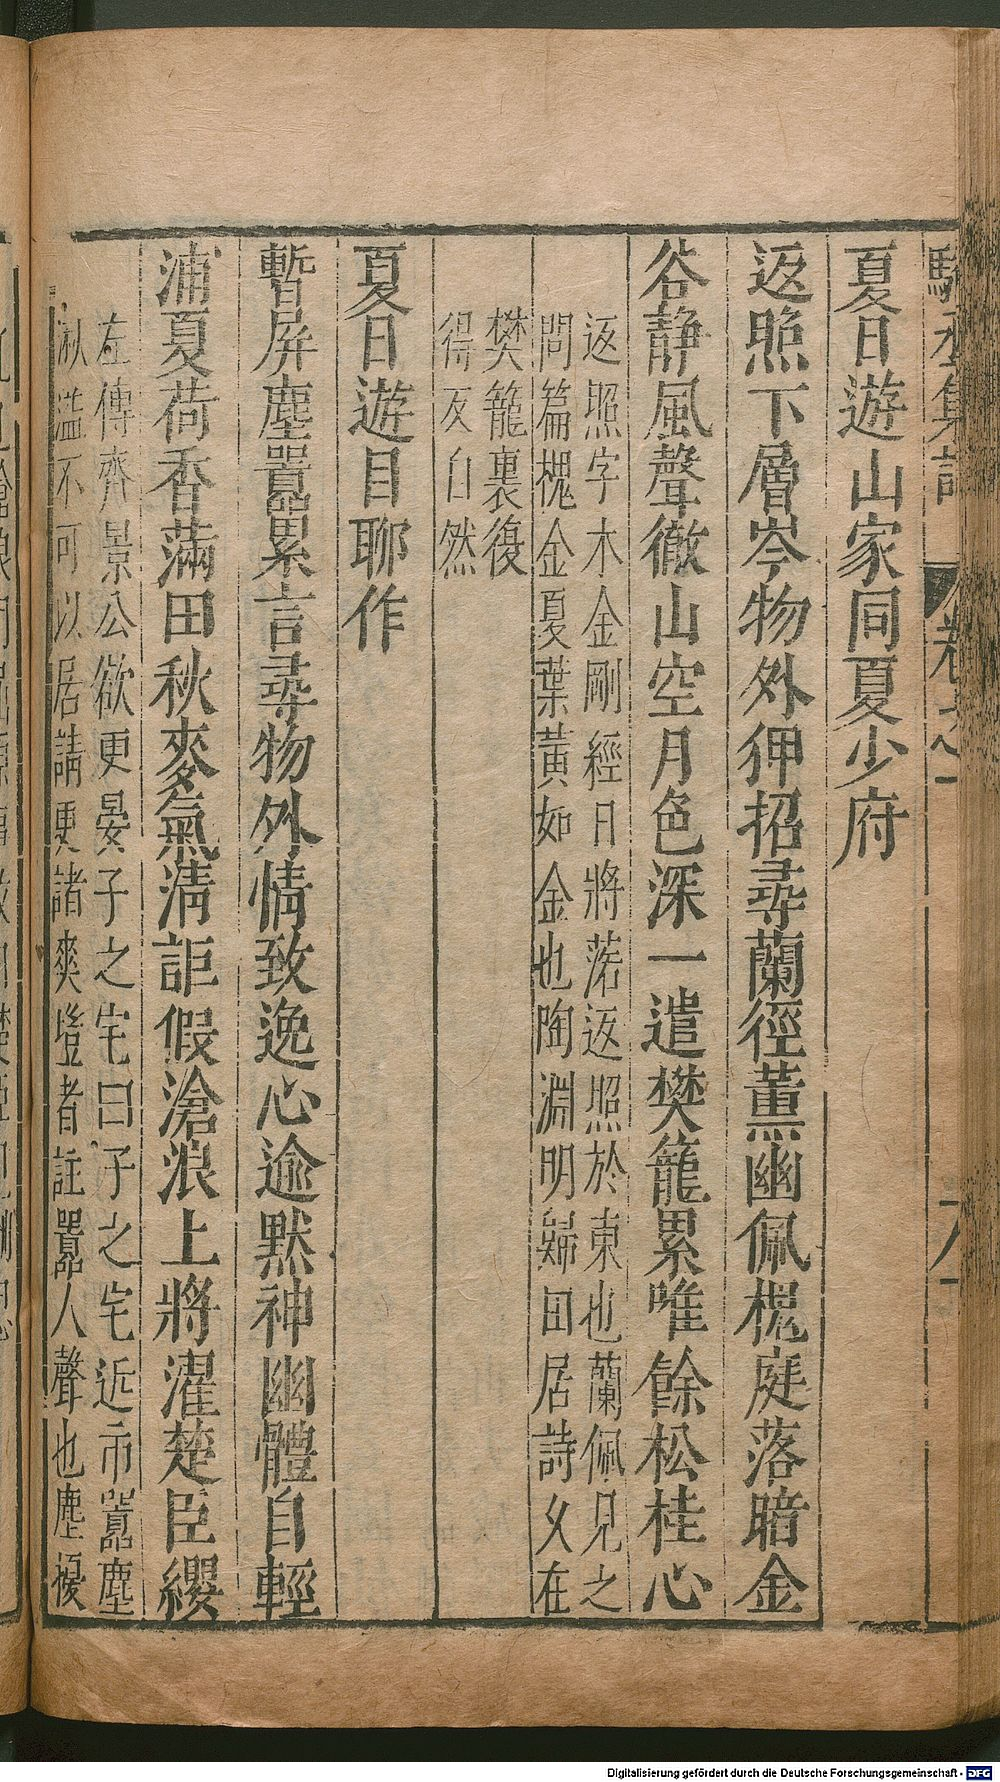 夏日遊山家同夏少府
返照下層岑物外狎招尋蘭徑薰幽佩槐庭落暗金
谷靜風聲徹山空月色深一遣樊籠累唯餘松桂心
返照字木金剛經日將落返照於東也蘭佩見之
問篇槐金夏葉黃如金也陶淵明歸田居詩久在
樊籠裏復
得反自然
夏日遊目聊作
暫屏塵囂累言尋物外情致逸心逾默神幽體自輕
浦夏荷香滿田秋麥氣清詎假滄浪上將濯楚臣纓
左傳齊景公欲更晏子之宅曰子之宅近市囂塵
湫溢不可以居請更諸爽塏者註囂人聲也塵
Digitalisierung gefördert durch die Deutsche Forschungsgemeinschaft - DFG